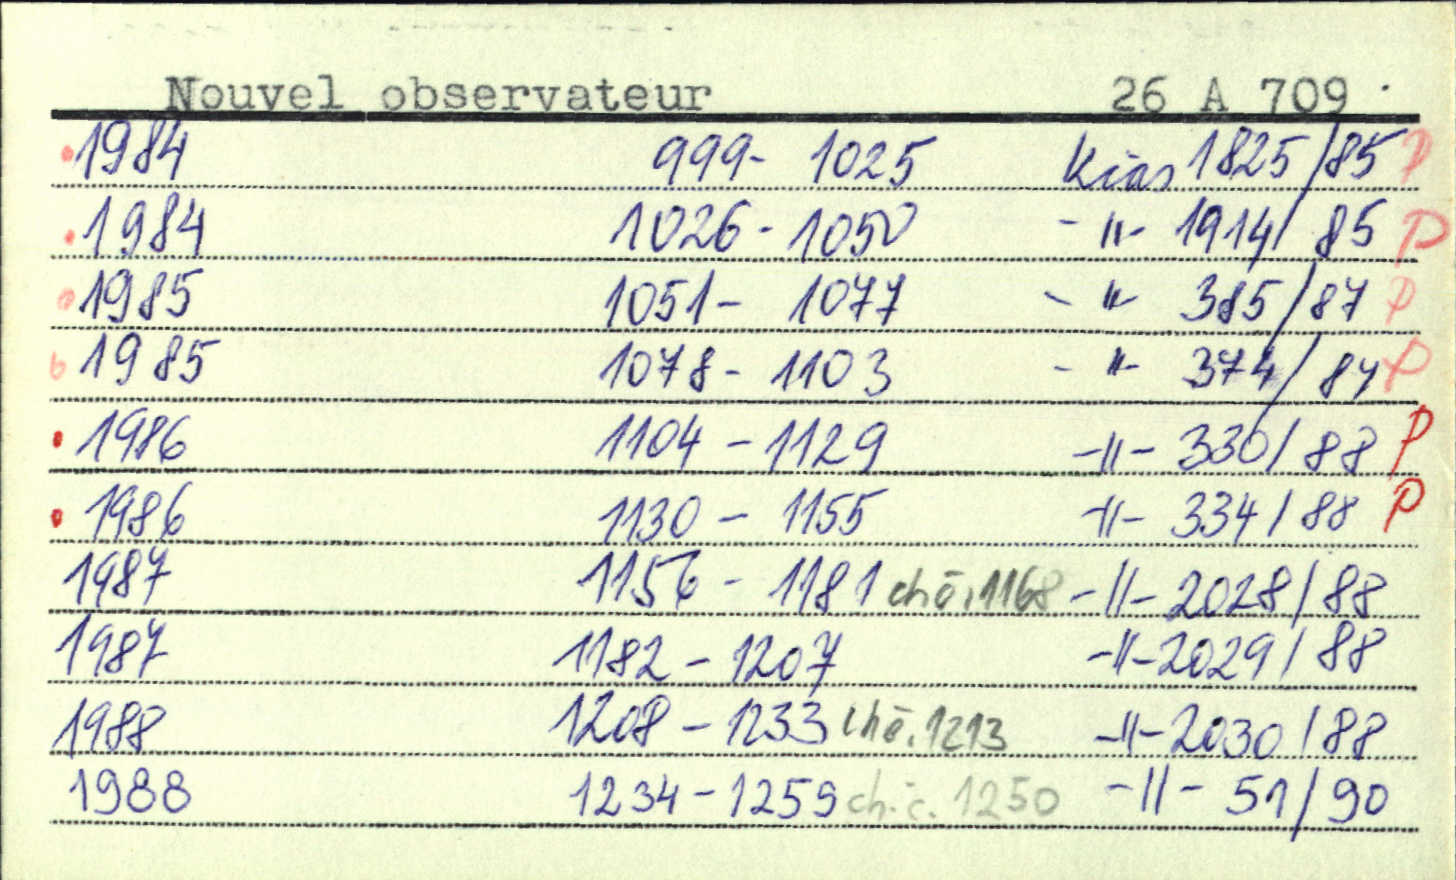 Nouvel observateur 26 A 709
1984 999- 1025 Kias 1825/85 P
1984 1026-1050 -"- 1914/85 P
1985 1051- 1077 -"- 385/87 P
1985 1078- 1103 -"- 374/87 P
1986 1104-1129 -"- 330/88 P
1986 1130-1155 -"- 334/88 P
1987 1156-1181 chč.1168 -"- 2028/88
1987 1182-1207 -"- 2029/88
1988 1208-1233 chč.1213 -"- 2030/88
1988 1234-1259 ch.č. 1250 -"- 51/90